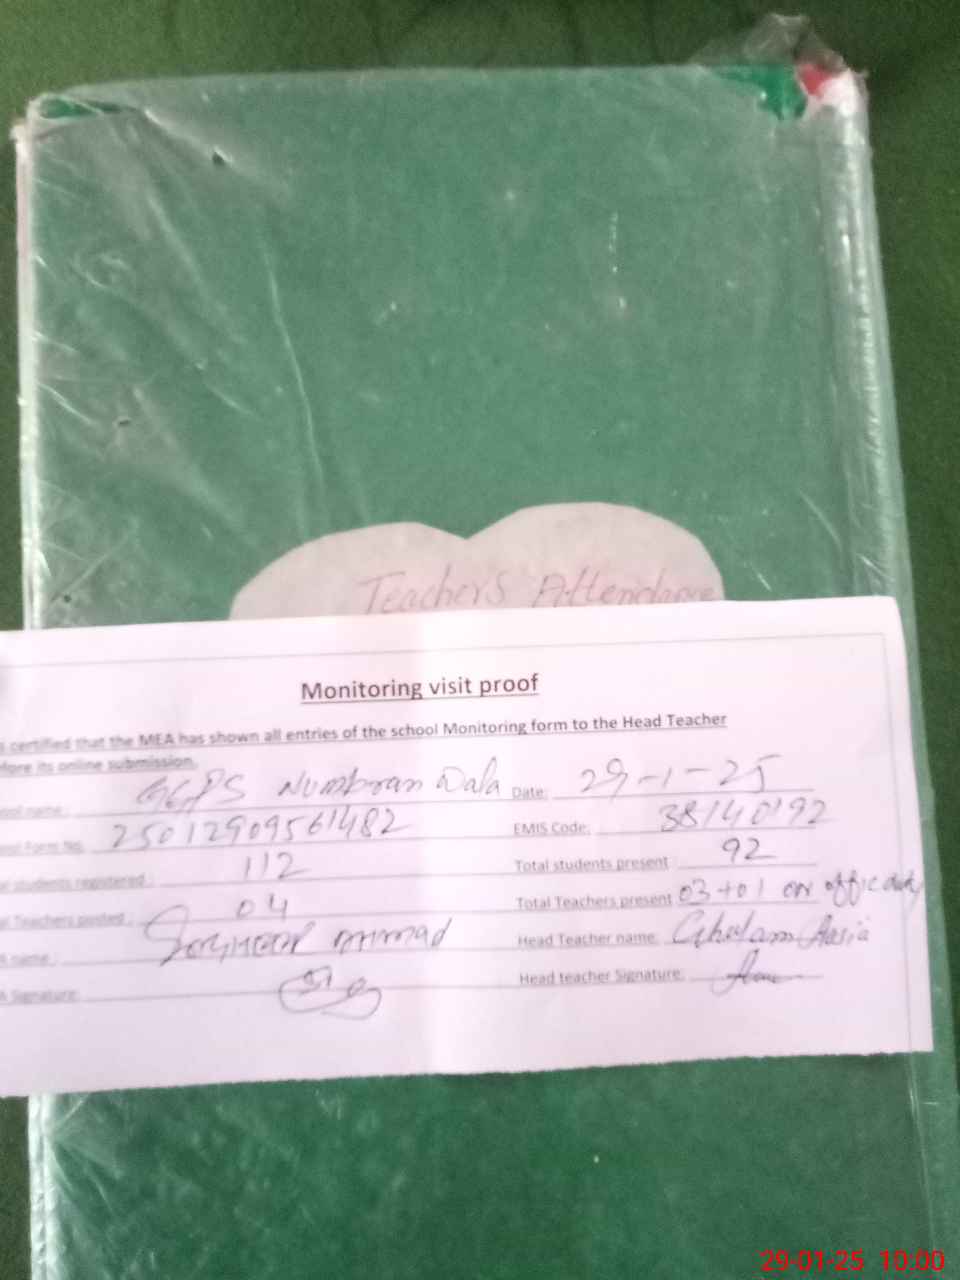 Teachers Attendance
Monitoring visit proof
certified that the MEA has shown all entries of the school Monitoring form to the Head Teacher
its online submission.
name: GGPS Numbran Wala Date: 29-1-25
Form No. 25012909561482 EMIS Code: 38140192
students registered: 112 Total students present: 92
Teachers posted: 04 Total Teachers present 03+01 on office duty
name: Ahmad Head Teacher name: Ghulam Asia
Signature: Head teacher Signature:
29-01-25 10:00